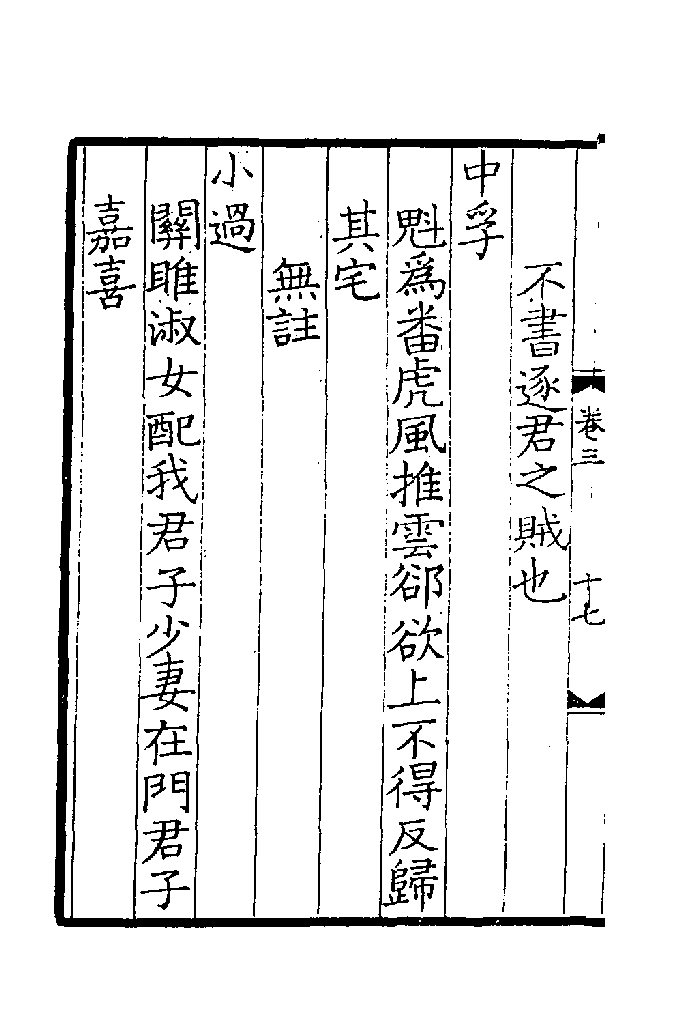 卷三　十七
不書逐君之賊也
中孚
魁爲畨虎風推雲郤欲上不得反歸
其宅
無註
小過
關雎淑女配我君子少妻在門君子
嘉喜